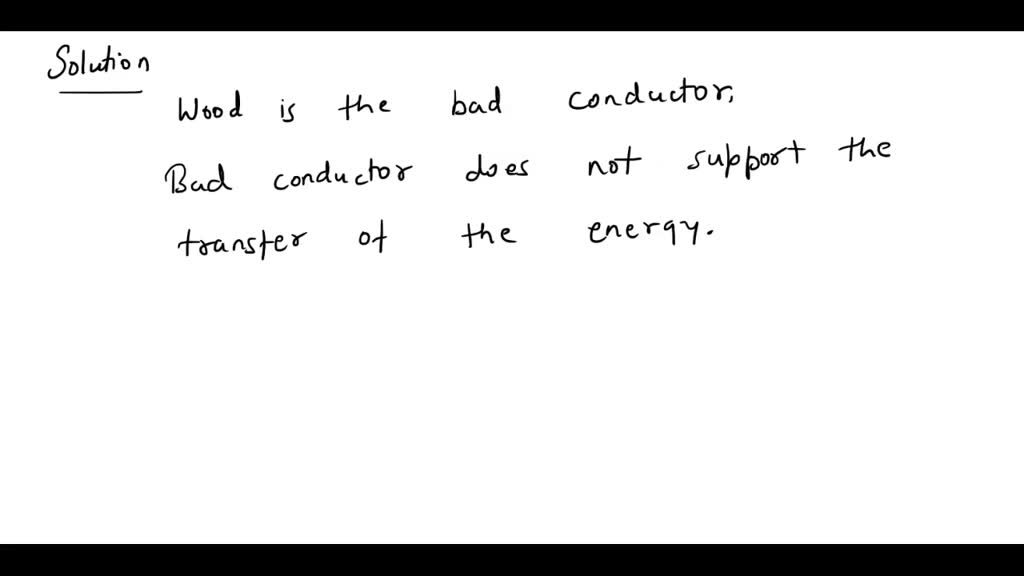 Solution
Wood is the bad conductor,
Bad conductor does not support the
transfer of the energy.